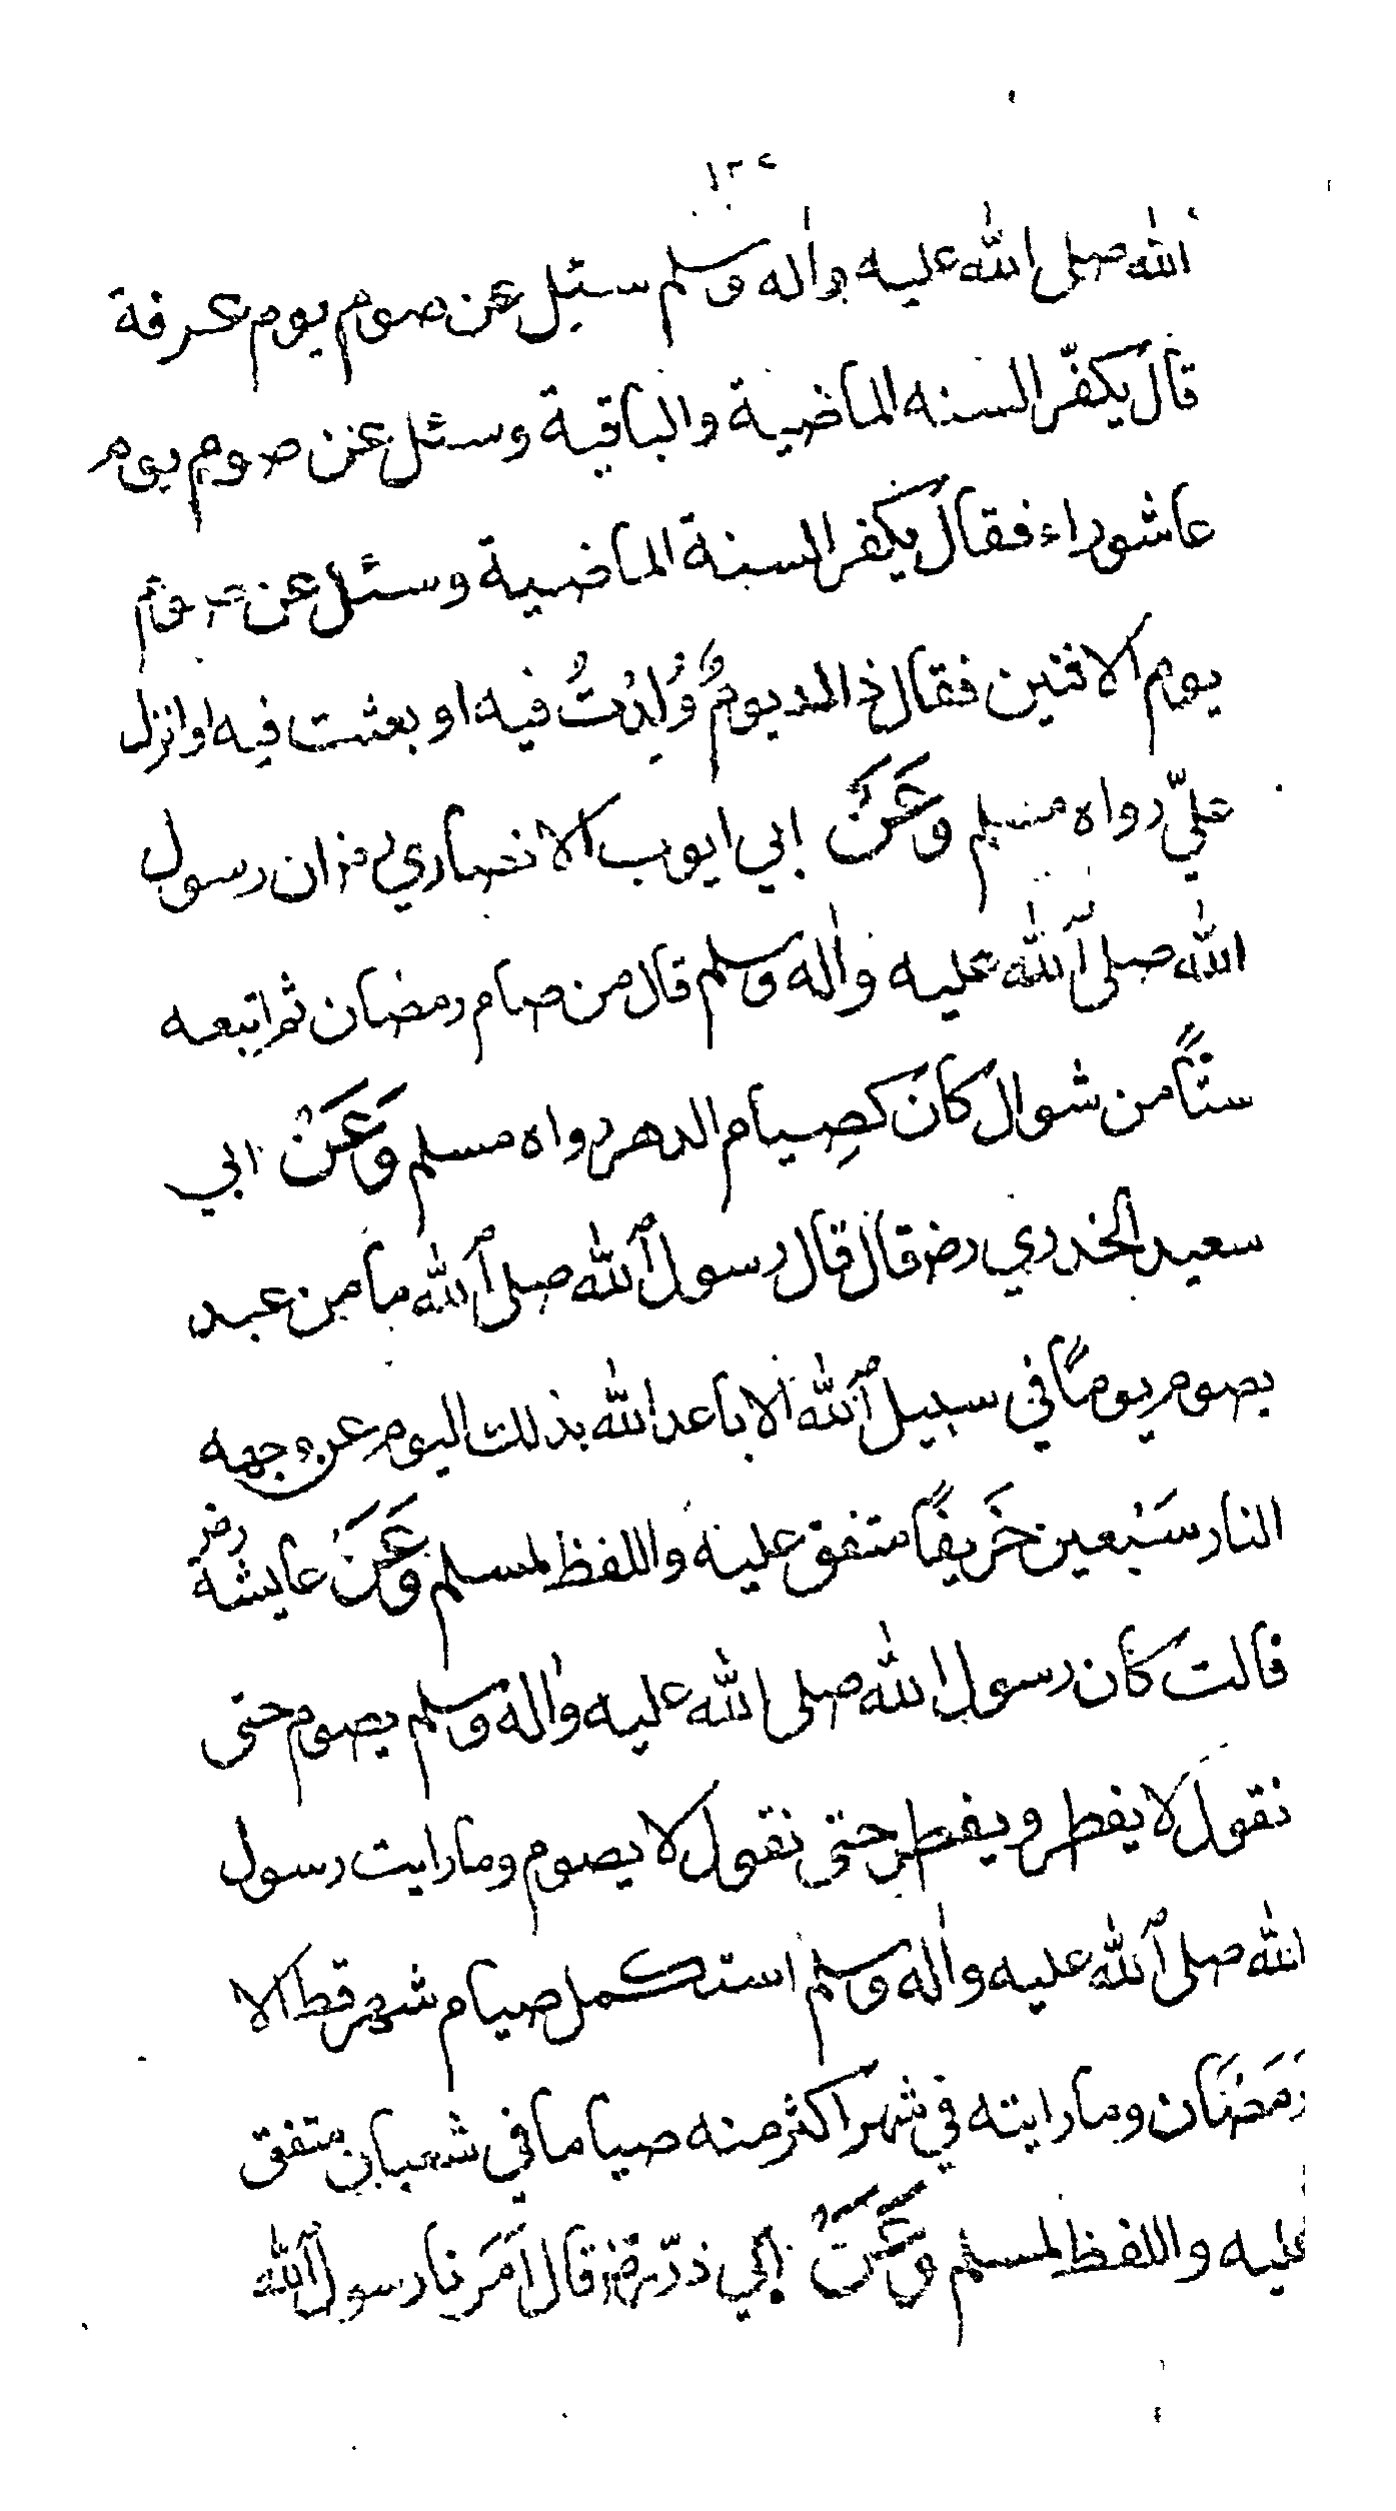 الله صلى الله عليه واله وسلم سئل عن صوم يوم عرفة
قال يكفّر السنه الماضية والباقية وسئل عن صوم يوم
عاشوراء فقال يكفر السنة الماضية وسئل عن صوم
يوم الاثنين فقال ذالك يومٌ وُلِدْتُ فيه او بعثت فيه او انزل
عليّ رواه مسلم وَعَنْ ابي ايوب الانصاري رض ان رسول
الله صلى الله عليه واله وسلم قال من صام رمضان ثم اتبعه
ستًّا من شوال كان كصِيام الدهر رواه مسلم وَعَنْ ابي
سعيد الخدري رض قال قال رسول الله صلى الله ما من عبد
يصوم يومًا في سبيل الله الا باعد الله بذلك اليوم عن وجهه
النار سَبْعين خَرِيفًا متفق عليه واللفظ لمسلم وَعَنْ عايشة رض
قالت كان رسول الله صلى الله عليه واله وسلم يصوم حتى
نقول لا يفطر ويفطر حتى نقول لا يصوم وما رايت رسول
الله صلى الله عليه واله وسلم استكمل صيام شهر قط الا
رَمَضَان وما رايته في شهر اكثر منه صياما في شعبان متفق
عليه واللفظ لمسلم وَعَنْ ابي ذرّ رض قال اَمَرنا رسول الله